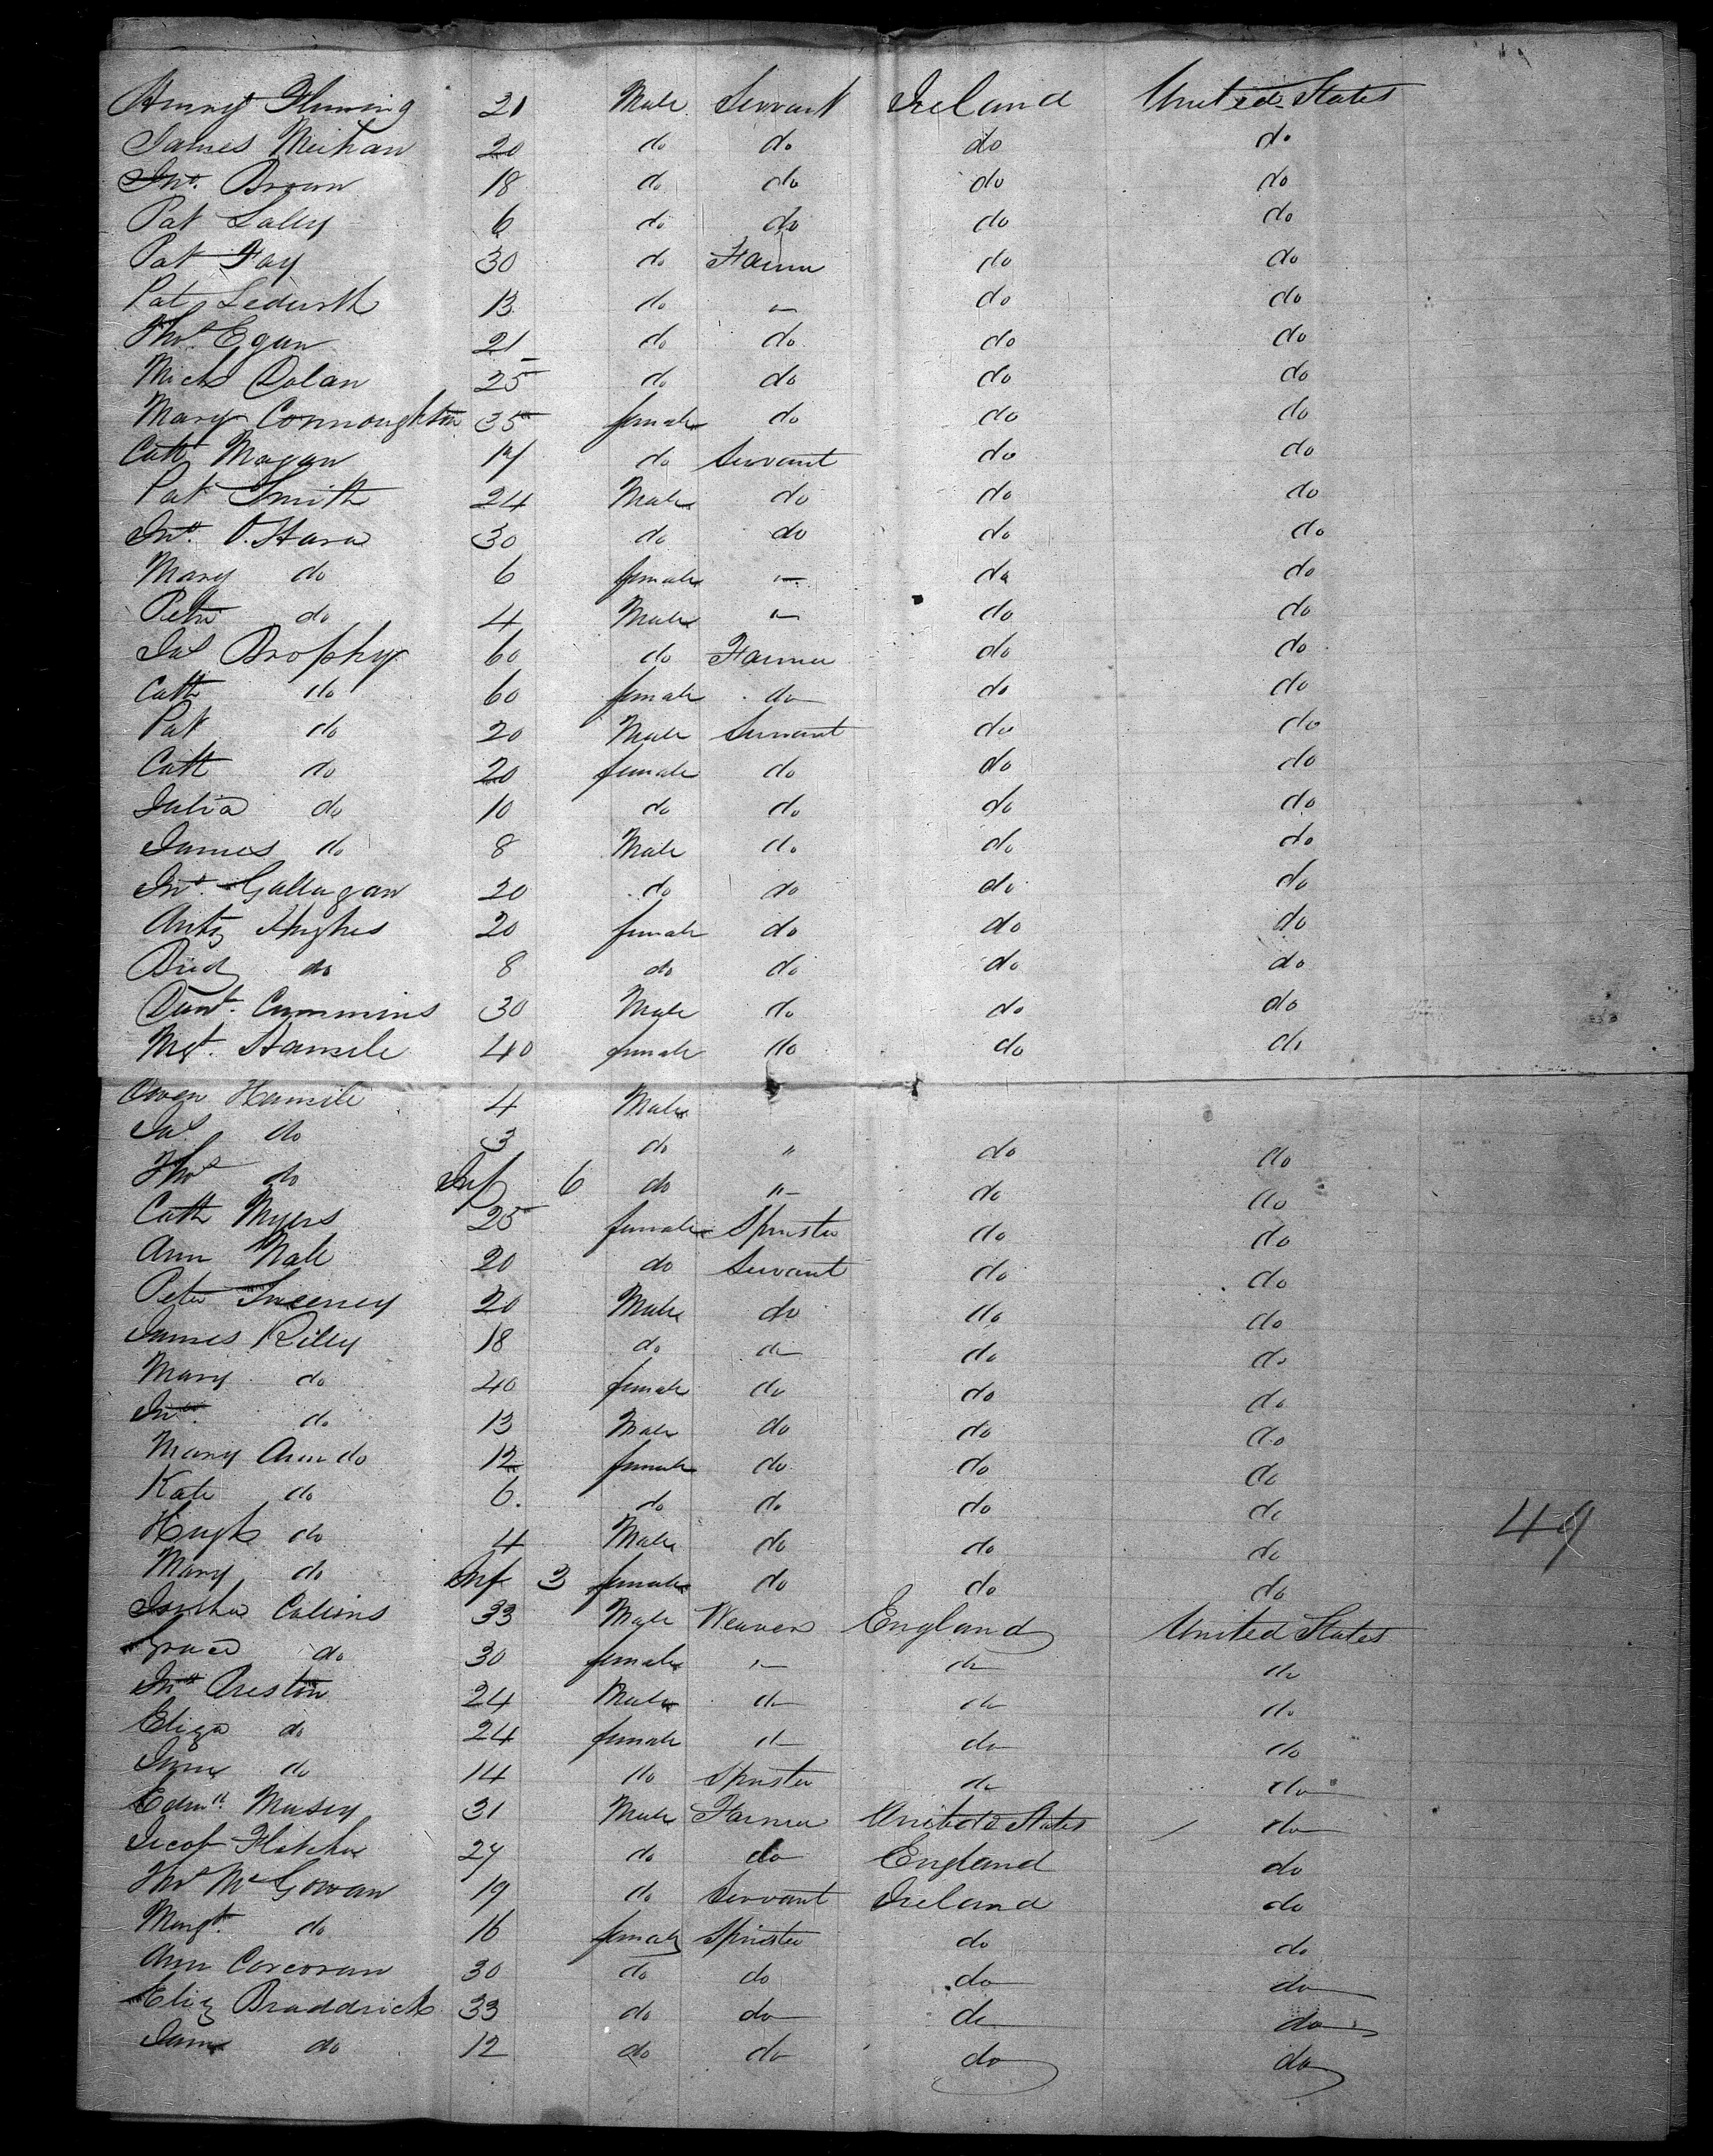 Henry Fleming 21 Male Servant Ireland United States
James Meehan 20 do do do do
Jno. Brown 18 do do do do
Pat Lally 6 do do do do
Pat Fay 30 do Farmer do do
Pat 13 do " do do
Thos Egan 21 do do do do
Michl Dolan 25 do do do do
Mary Connoughton 35 female do do do
Cath Magan 17 do Servant do do
Pat Smith 24 Male do do do
Jno. O.Hara 30 do do do do
Mary do 6 female " do do
Peter do 4 Male " do do
Jas Brophy 60 do Farmer do do
Cath do 60 female do do do
Pat do 20 Male Servant do do
Cath do 20 female do do do
Julia do 10 do do do do
James do 8 Male do do do
Jno. Gallagan 20 do do do do
Hughes 20 female do do do
Bridg do 8 do do do do
Cummins 30 Male do do do
Mgt. Hamile 40 female do do do
Owen Hamile 4 Male
Jas do 3 do " do do
Thos do Inf 6 do " do do
Cath Myers 25 female Spinster do do
Ann Nale 20 do Servant do do
Peter Sweeney 20 Male do do do
James Riley 18 do do do do
Mary do 40 female do do do
Jno. do 13 Male do do do
Mary Ann do 12 female do do do
Kate do 6. do do do do
Hugh do 4 Male do do do
49
Mary do Inf 3 female do do do
Collins 33 Male Weaver England United States
Grace do 30 female " do do
Jno Preston 24 Male do do do
Eliza do 24 female do do do
Jane do 14 do Spinster do do
Edwd. Musey 31 Male Farmer United States do
Jacob Fletcher 27 do do England do
Thos McGowan 19 do Servant Ireland do
Margt. do 16 female Spinster do do
Ann Corcoran 30 do do do do
Eliz Braddrick 33 do do do do
Jane do 12 do do do do